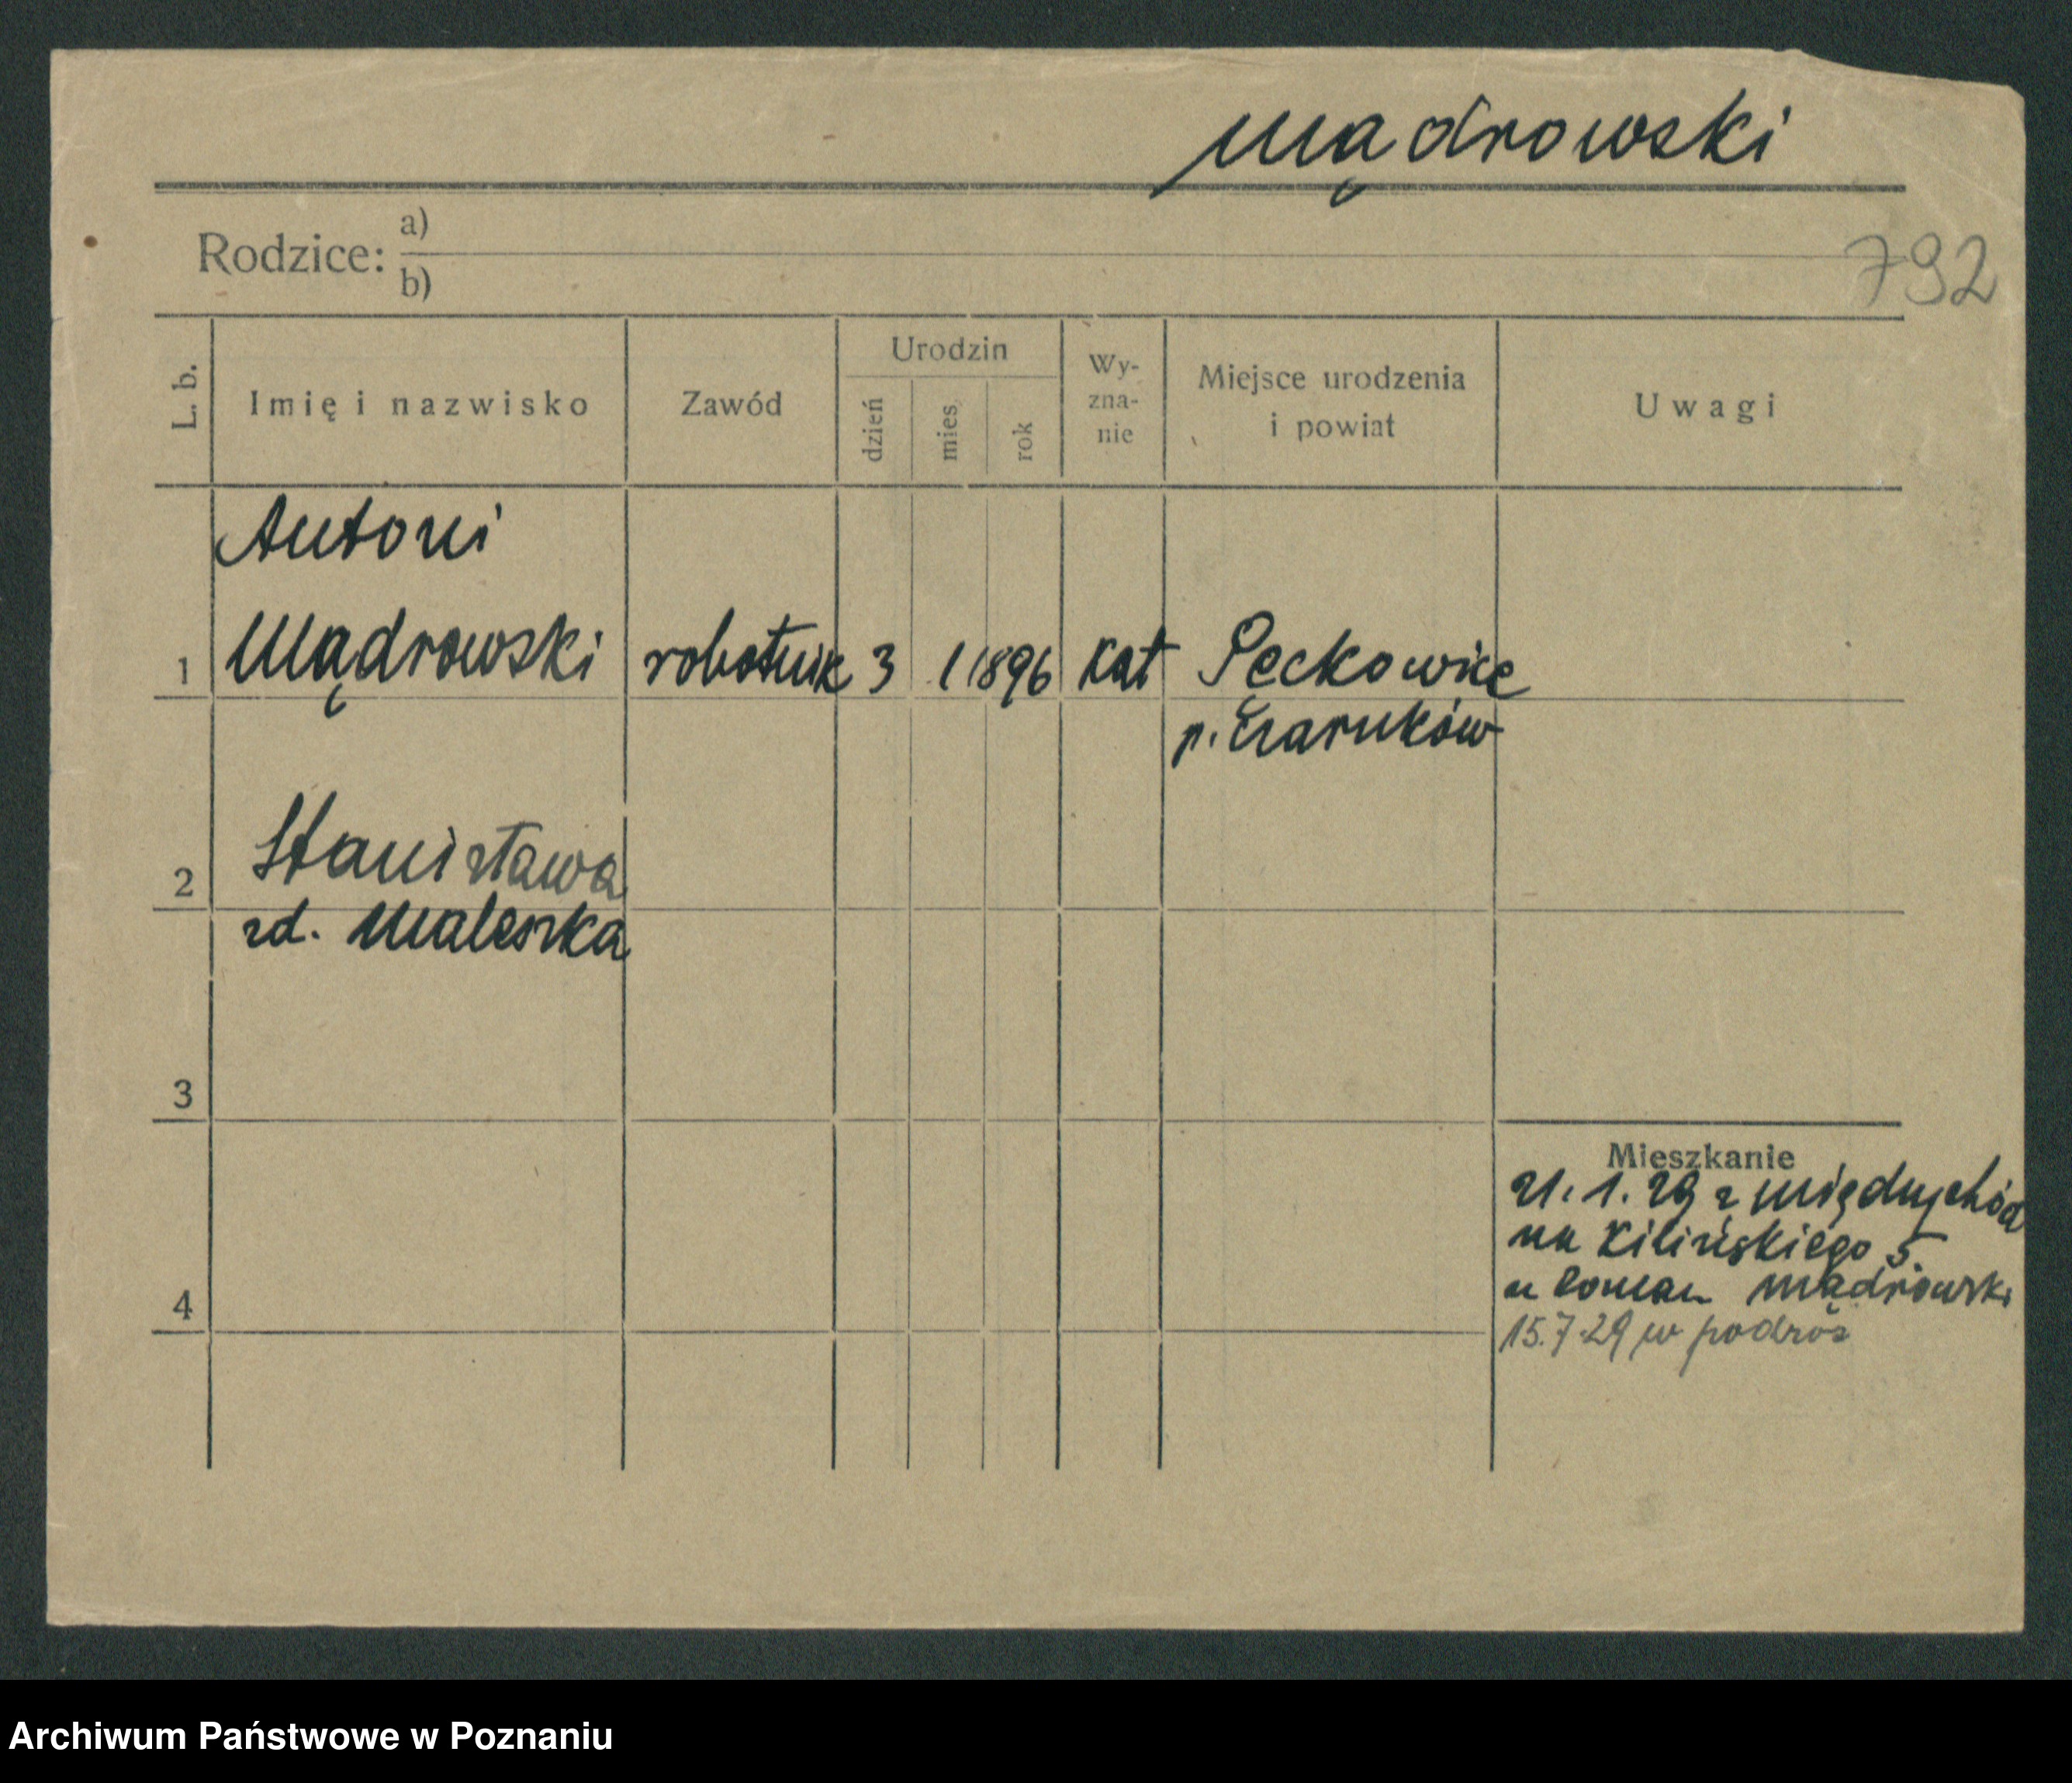 Mądrowski
Rodzice: a)
b)
792
L. b.
Imię i nazwisko
Zawód
Urodzin
dzień
mies.
rok
Wy-
zna-
nie
Miejsce urodzenia
i powiat
Uwagi
Antoni
1 Mądrowski robotnik 3 1 1896 kat Pęckowice
p. Czarnków
2 Stanisława
zd. Maleszka
3
4
Mieszkanie
21. 1. 29 z Międzychód
na Kilińskiego 5
u Roman Mądrowski
15.7.29 w podróż
Archiwum Państwowe w Poznaniu